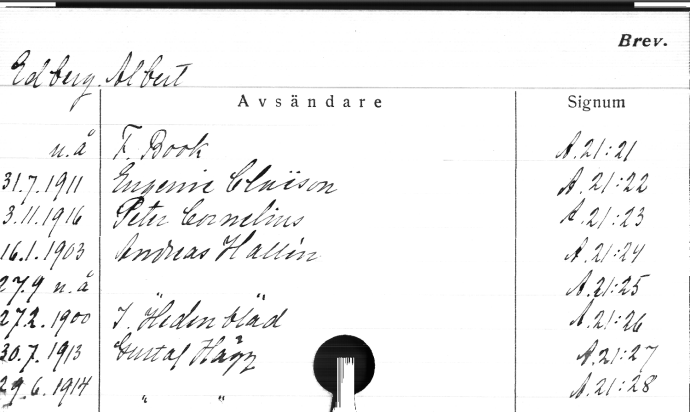 Brev.
Edberg, Albert
Avsändare Signum
u.å F. Book A.21:21
31.7.1911 Eugenie Claëson A.21:22
3.11.1916 Peter Cornelius A.21:23
16.1.1903 Andreas Hallén A.21:24
27.9 u.å A.21:25
27.2.1900 I. Hedenblad A.21:26
30.7.1913 Gustaf Hägg A.21:27
29.6.1914 " " A.21:28